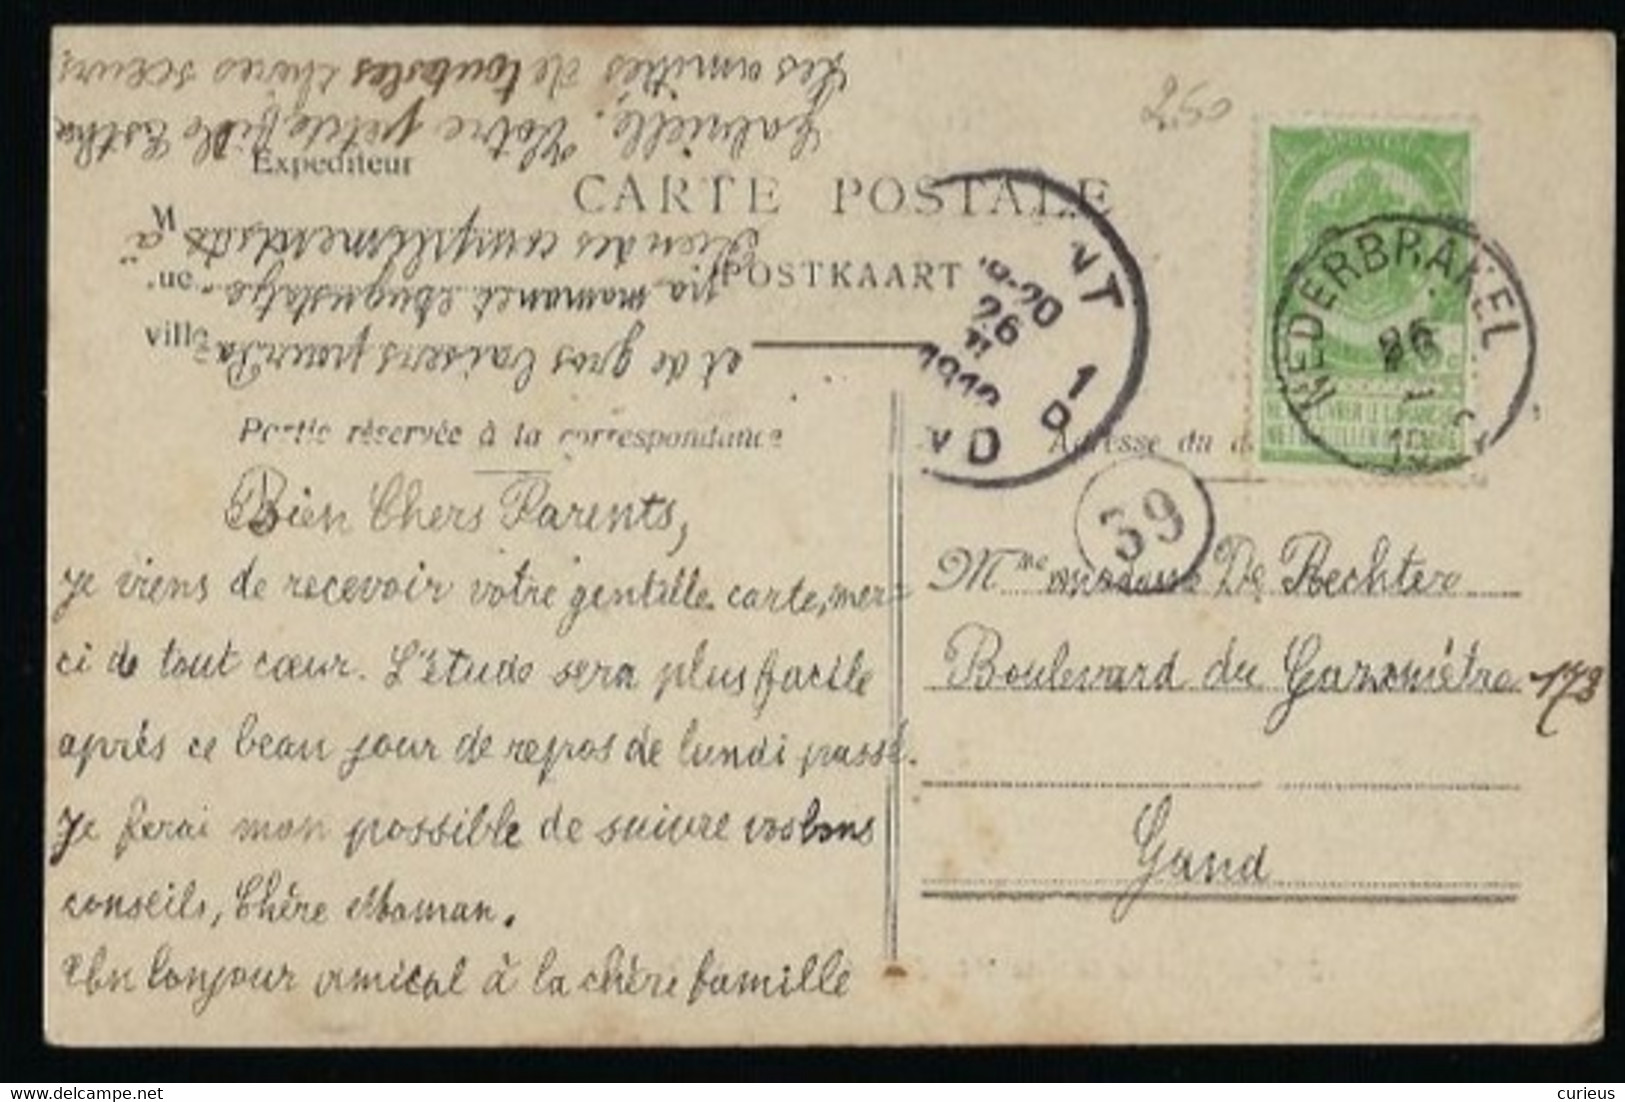 2.50
Expéditeur
CARTE POSTALE
M
POSTKAART
ue
ville
NT
9-20
26
II
1910
1
D
NEDERBRAKEL
26
19
Partie réservée à la correspondance
Adresse du d
39
Bien Chers Parents,
Je viens de recevoir votre gentille carte, mer-
ci de tout cœur. L'étude sera plus facile
après ce beau jour de repos de lundi passé.
Je ferai mon possible de suivre vos bons
conseils, Chère Maman.
Un bonjour amical à la chère famille
et de gros baisers pour Pa
pa maman et Auguste
Bien des compliments à
Gabrielle. Votre petite fille Esther
Les amitiés de toutes les chères sœurs
Mme madame De Rechter
Boulevard du Gazomètre 173
Gand
curieus